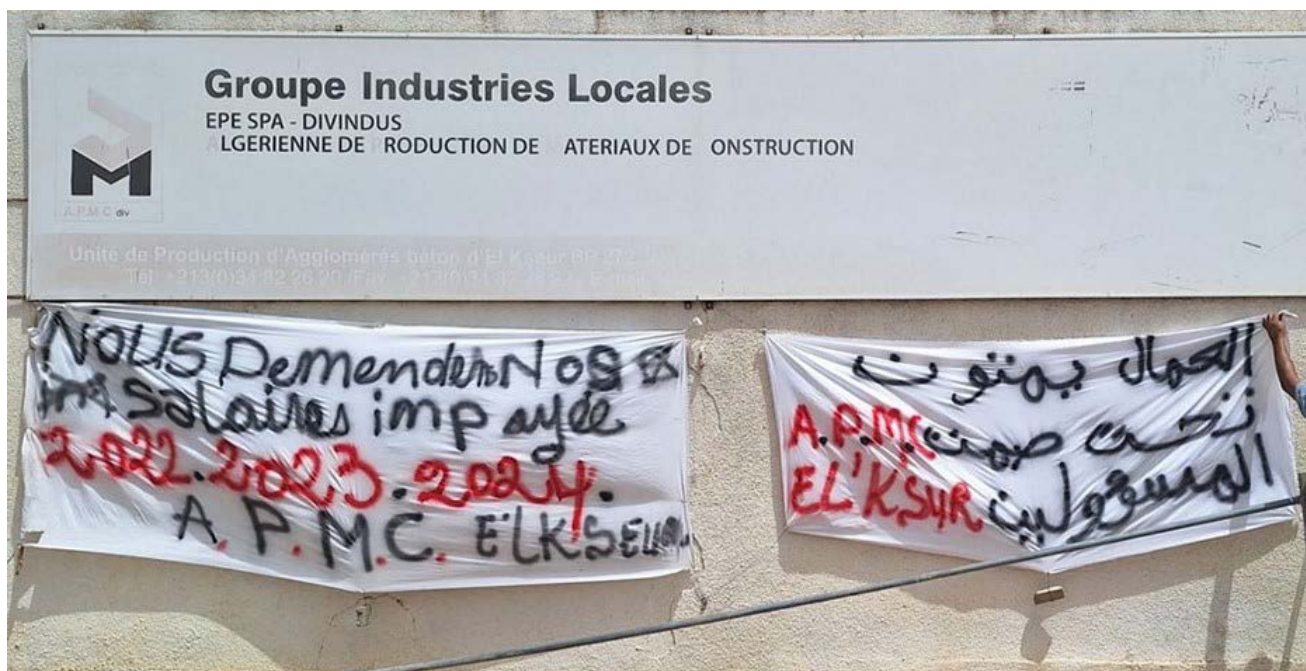 Groupe Industries Locales
EPE SPA - DIVINDUS
ALGERIENNE DE PRODUCTION DE MATERIAUX DE ONSTRUCTION
A.P.M.C div
Unité de Production d'Agglomérés béton d'El Kseur BP 272
Tél +213(0)34 82 26 20 /Fax +213(0)34 82
NOUS Demendens NOS
salaires impayée
2022.2023.2024.
A.P.M.C. E'LKSEUR
العمال يموتون
تحت صمت A.P.MC
المسؤولين EL'KSUR